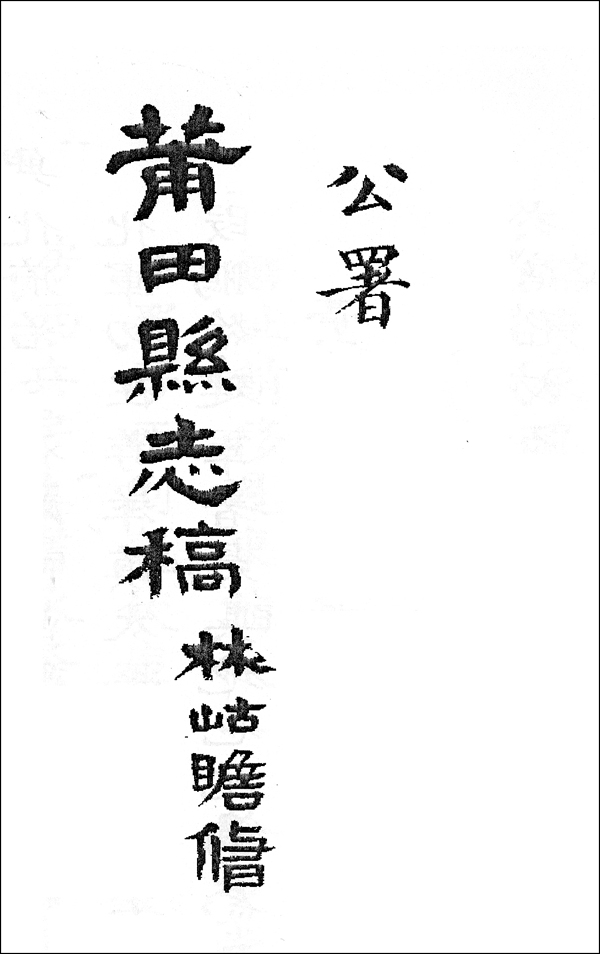 公署
莆田縣志稿
林岵瞻脩